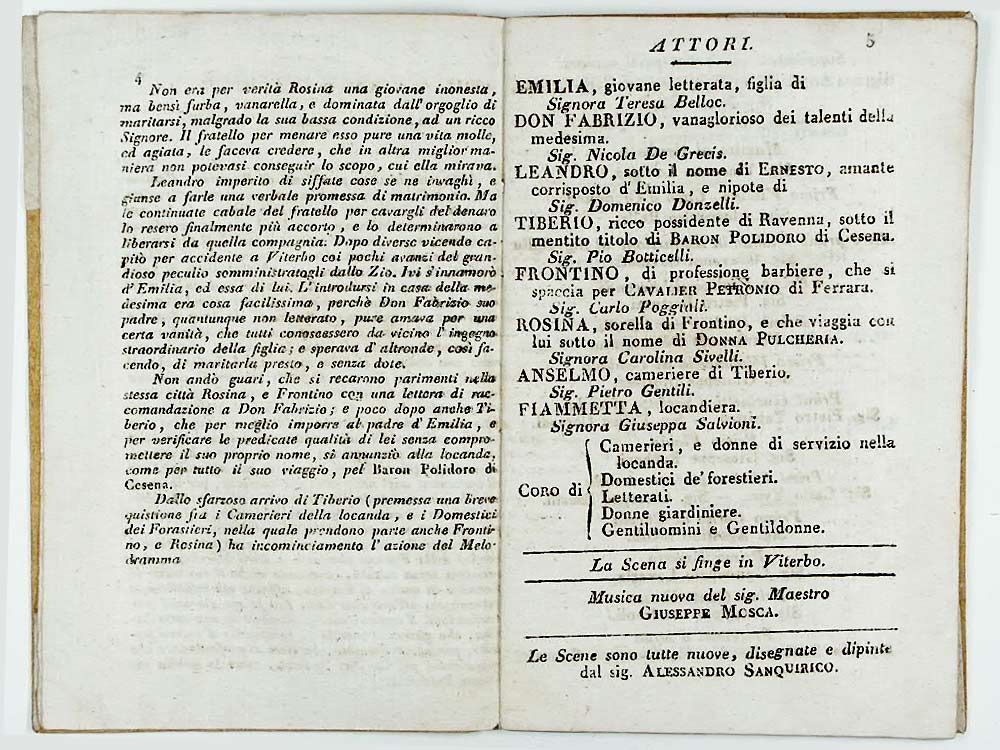 4
Non era per verità Rosina una giovane inonesta,
ma bensì furba, vanarella, e dominata dall'orgoglio di
maritarsi, malgrado la sua bassa condizione, ad un ricco
Signore. Il fratello per menare esso pure una vita molle,
ed agiata, le faceva credere, che in altra miglior ma-
niera non potevasi conseguir lo scopo, cui ella mirava.
Leandro imperito di siffate cose se ne invaghì, e
giunse a farle una verbale promessa di matrimonio. Ma
le continuate cabale del fratello per cavargli del denaro
lo resero finalmente più accorto, e lo determinarono a
liberarsi da quella compagnia. Dopo diverse vicende ca-
pitò per accidente a Viterbo coi pochi avanzi del gran-
dioso peculio somministratogli dallo Zio. Ivi s'innamorò
d'Emilia, ed essa di lui. L'introdursi in casa della me-
desima era cosa facilissima, perchè Don Fabrizio suo
padre, quantunque non letterato, pure amava per una
certa vanità, che tutti conoscessero da vicino l'ingegno
straordinario della figlia; e sperava d'altronde, così fa-
cendo, di maritarla presto, e senza dote.
Non andò guari, che si recarono parimenti nella
stessa città Rosina, e Frontino con una lettera di rac-
comandazione a Don Fabrizio; e poco dopo anche Ti-
berio, che per meglio imporre al padre d'Emilia, e
per verificare le predicate qualità di lei senza compro-
mettere il suo proprio nome, si annunziò alla locanda,
come per tutto il suo viaggio, pel Baron Polidoro di
Cesena.
Dallo sfarzoso arrivo di Tiberio (premessa una breve
quistione fra i Camerieri della locanda, e i Domestici
dei Forastieri, nella quale prendono parte anche Fronti-
no, e Rosina) ha incominciamento l'azione del Melo-
dramma
ATTORI.
5
EMILIA, giovane letterata, figlia di
Signora Teresa Belloc.
DON FABRIZIO, vanaglorioso dei talenti della
medesima.
Sig. Nicola De Grecis.
LEANDRO, sotto il nome di ERNESTO, amante
corrisposto d'Emilia, e nipote di
Sig. Domenico Donzelli.
TIBERIO, ricco possidente di Ravenna, sotto il
mentito titolo di BARON POLIDORO di Cesena.
Sig. Pio Botticelli.
FRONTINO, di professione barbiere, che si
spaccia per CAVALIER PETRONIO di Ferrara.
Sig. Carlo Poggiali.
ROSINA, sorella di Frontino, e che viaggia con
lui sotto il nome di DONNA PULCHERIA.
Signora Carolina Sivelli.
ANSELMO, cameriere di Tiberio.
Sig. Pietro Gentili.
FIAMMETTA, locandiera.
Signora Giuseppa Salvioni.
CORO di
Camerieri, e donne di servizio nella
locanda.
Domestici de' forestieri.
Letterati.
Donne giardiniere.
Gentiluomini e Gentildonne.
La Scena si finge in Viterbo.
Musica nuova del sig. Maestro
GIUSEPPE MOSCA.
Le Scene sono tutte nuove, disegnate e dipinte
dal sig. ALESSANDRO SANQUIRICO.